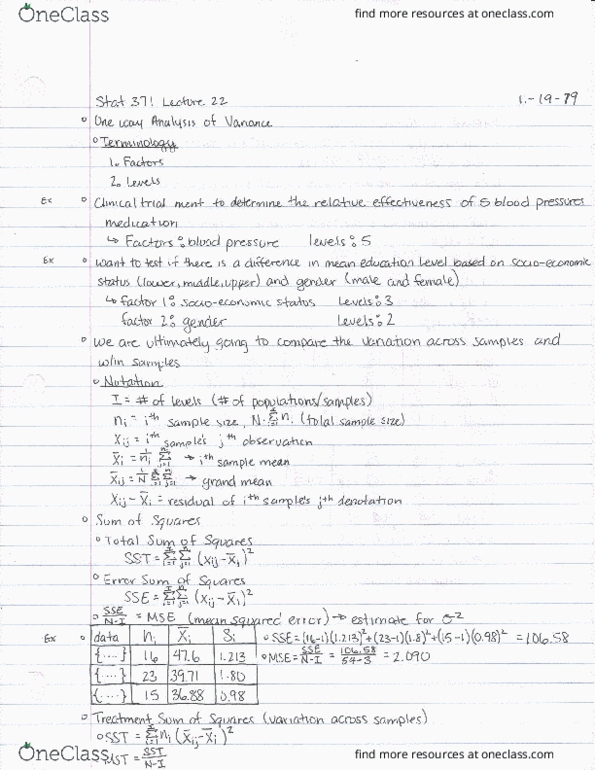 OneClass find more resources at oneclass.com
Stat 371 Lecture 22 1.-19-79
One way Analysis of Variance
Terminology
1. Factors
2. Levels
Ex Clinical trial ment to determine the relative effectiveness of 5 blood pressures
medication
↳ Factors: blood pressure levels: 5
Ex want to test if there is a difference in mean education level based on socio-economic
status (lower, middle, upper) and gender (male and female)
↳ factor 1: socio-economic status Levels: 3
factor 2: gender Levels: 2
we are ultimately going to compare the variation across samples and
w/in samples
Notation
I = # of levels (# of populations/samples)
nᵢ = iᵗʰ sample size, N = Σ nᵢ (total sample size)
Xᵢⱼ = iᵗʰ sample's jᵗʰ observation
X̄ᵢ = 1/nᵢ Σ → iᵗʰ sample mean
X̄ᵢⱼ = 1/N ΣΣ → grand mean
Xᵢⱼ - X̄ᵢ = residual of iᵗʰ sample's jᵗʰ denotation
Sum of Squares
Total Sum of Squares
SST = ΣΣ (xᵢⱼ - x̄ᵢ)²
Error Sum of Squares
SSE = ΣΣ (xᵢⱼ - x̄ᵢ)²
SSE/N-I = MSE (mean squared error) → estimate for σ²
Ex data nᵢ X̄ᵢ Sᵢ SSE = (16-1)(1.213)² + (23-1)(1.8)² + (15-1)(0.98)² = 106.58
{...} 16 47.6 1.213 MSE = SSE/N-I = 106.58/54-3 = 2.090
{...} 23 39.71 1.80
{...} 15 36.88 0.98
Treatment Sum of Squares (variation across samples)
SST = Σ nᵢ (X̄ᵢⱼ - X̄ᵢ)²
MST = SST/N-I
OneClass find more resources at oneclass.com